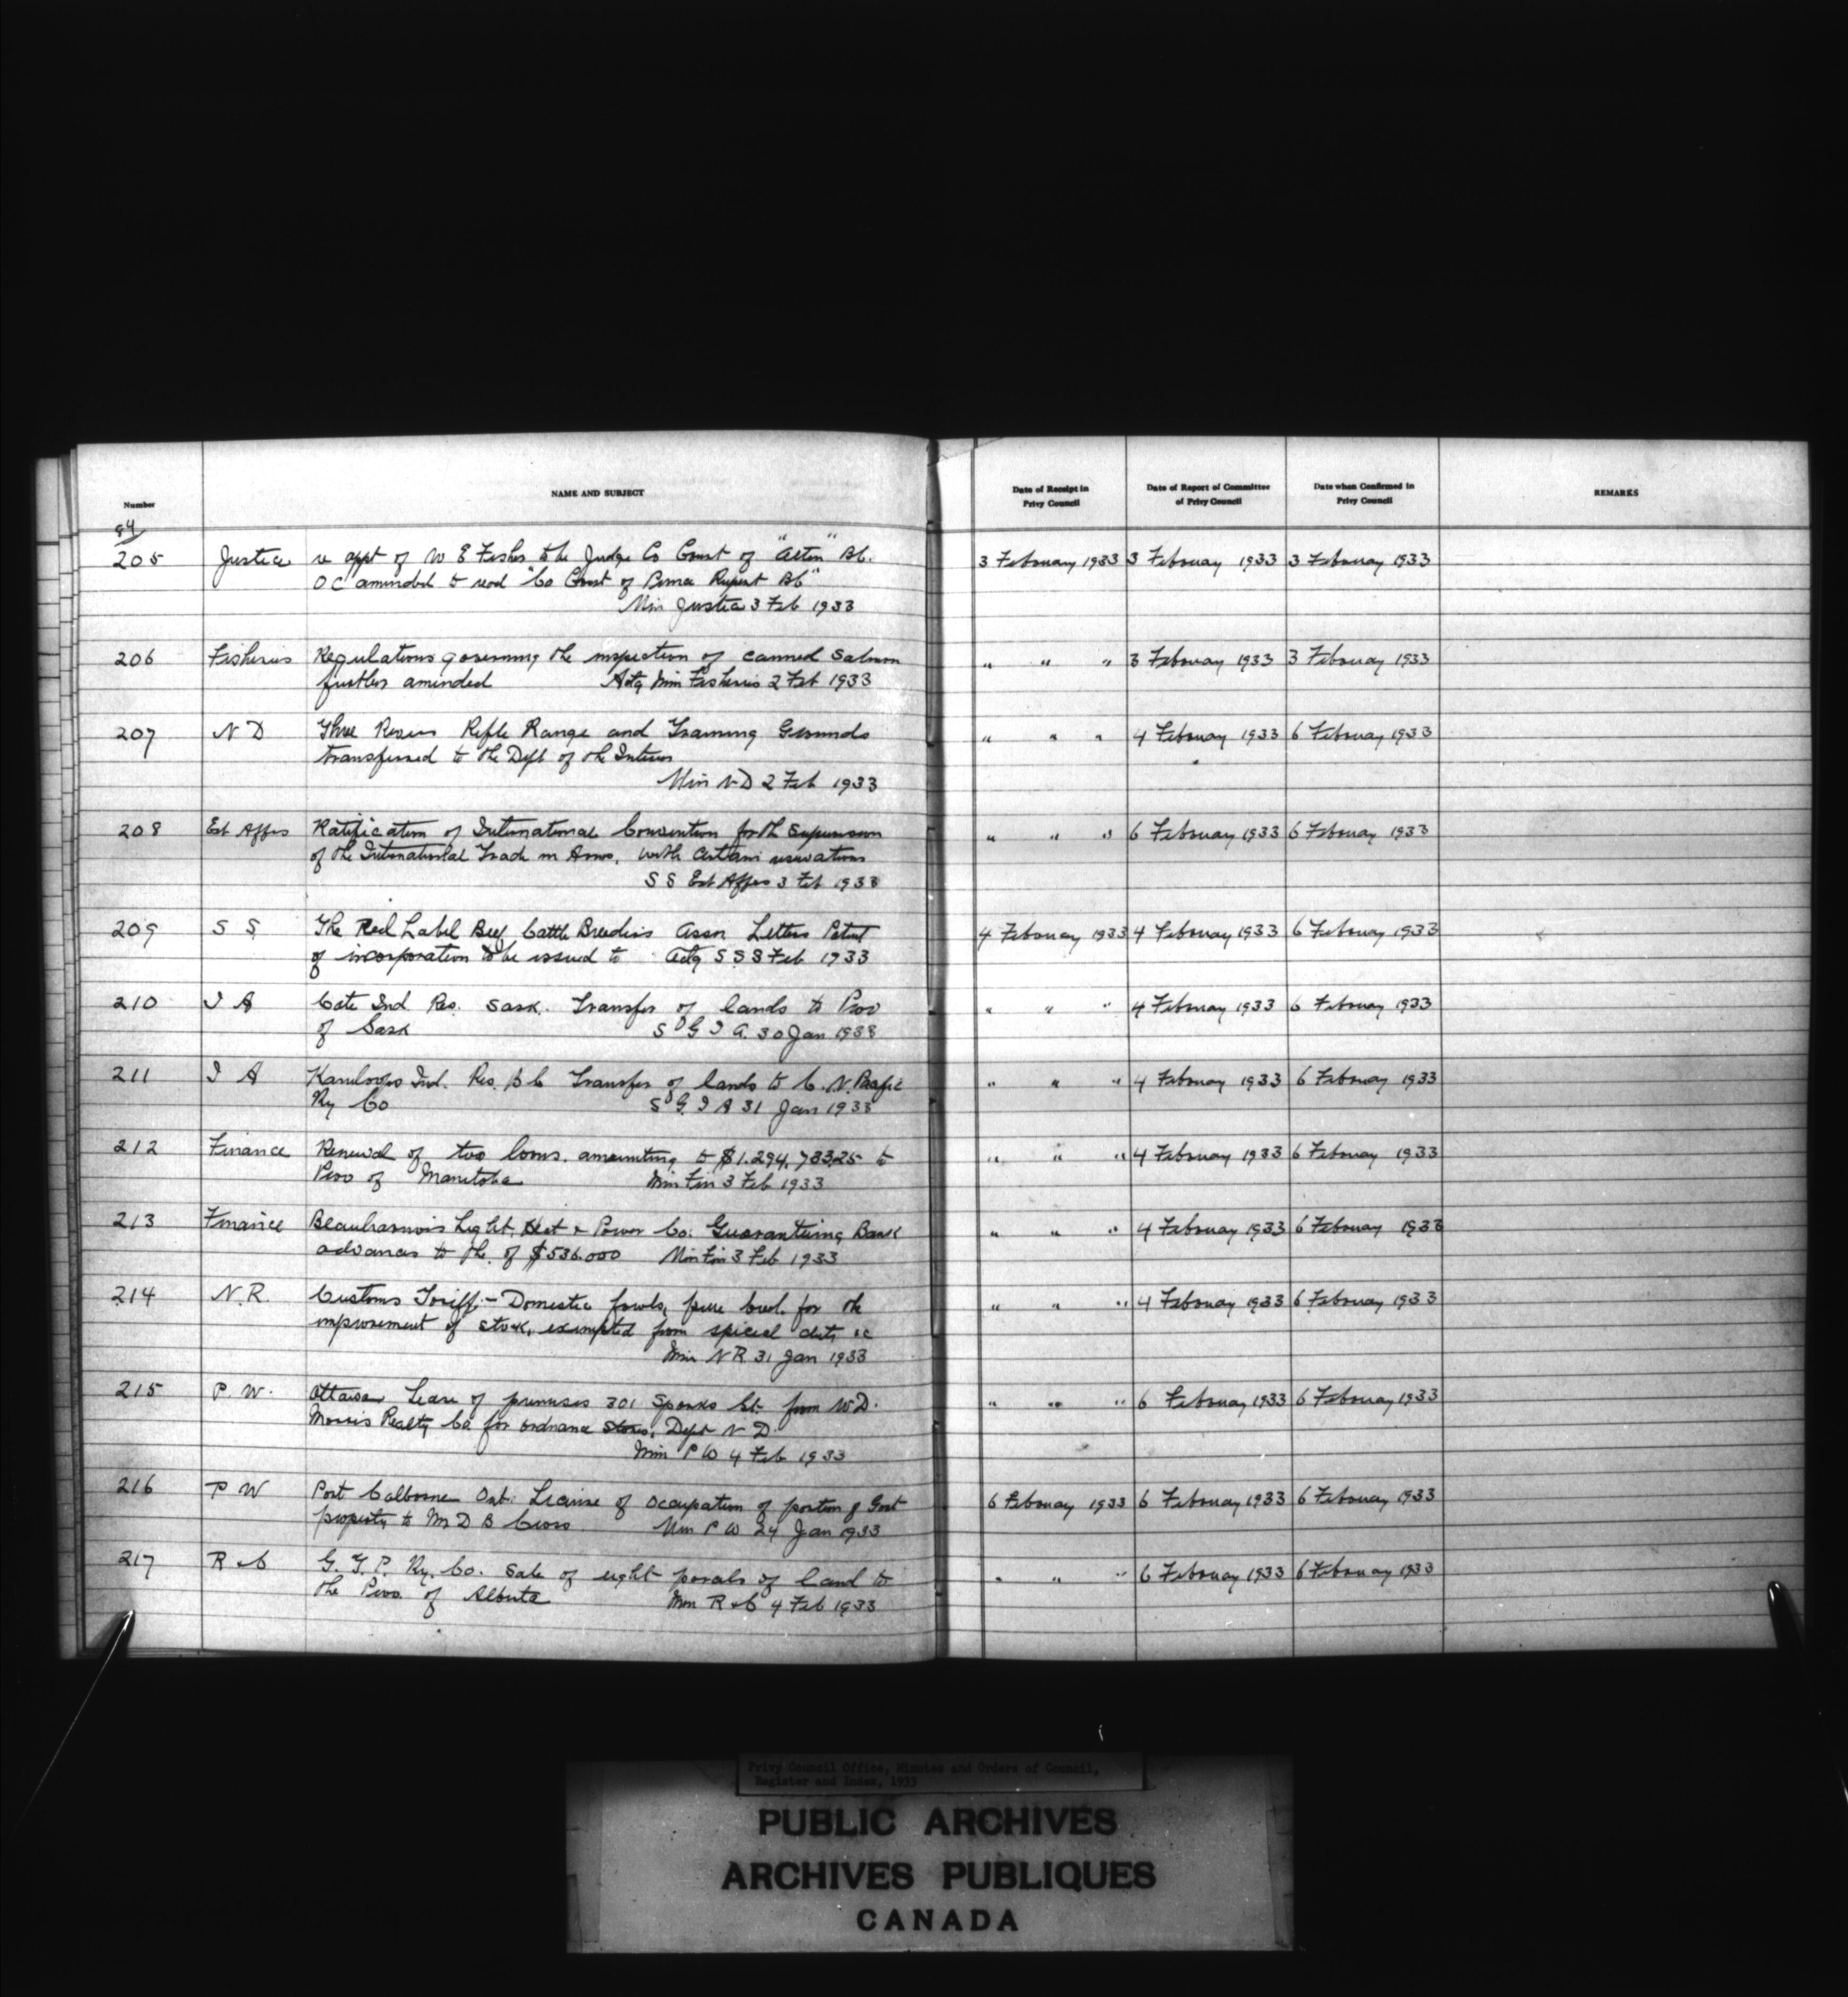 Number
NAME AND SUBJECT
Date of Receipt in Privy Council
Date of Report of Committee of Privy Council
Date when Confirmed in Privy Council
REMARKS
205 Justice re appt of W E Fisher to be Judge Co Court of "Atlin" BC. 3 February 1933 3 February 1933 3 February 1933
OC amended to read "Co Court of Prince Rupert BC"
Min Justice 3 Feb 1933
206 Fisheries Regulations governing the inspection of canned salmon " " " 3 February 1933 3 February 1933
further amended Actg Min Fisheries 2 Feb 1933
207 N D Three Rivers Rifle Range and Training Grounds " " " 4 February 1933 6 February 1933
transferred to the Dept of the Interior
Min N D 2 Feb 1933
208 Ext Affrs Ratification of International Convention for the Supervision " " " 6 February 1933 6 February 1933
of the International Trade in Arms, with certain reservations
S S Ext Affrs 3 Feb 1933
209 S S The Red Label Beef Cattle Breeders Assn Letters Patent 4 February 1933 4 February 1933 6 February 1933
of incorporation to be issued to Actg S S 3 Feb 1933
210 I A Cote Ind. Res. Sask. Transfer of lands to Prov " " " 4 February 1933 6 February 1933
of Sask S G I A. 30 Jan 1933
211 I A Kamloops Ind. Res. B C Transfer of lands to C. N. Pacific " " " 4 February 1933 6 February 1933
Ry Co S G I A 31 Jan 1933
212 Finance Renewal of two loans amounting to $1.294.783.25 to " " " 4 February 1933 6 February 1933
Prov of Manitoba Min Fin 3 Feb 1933
213 Finance Beauharnois Light, Heat & Power Co. Guaranteeing Bank " " " 4 February 1933 6 February 1933
advances to the. of $536.000 Min Fin 3 Feb 1933
214 N. R. Customs Tariff - Domestic fowls, pure bred for the " " " 4 February 1933 6 February 1933
improvement of stock, exempted from special duty &c
Min N R 31 Jan 1933
215 P. W. Ottawa Lease of premises 301 Sparks St. from W D. " " " 6 February 1933 6 February 1933
Morris Realty Co for ordnance stores, Dept N D.
Min P W 4 Feb 1933
216 P W Port Colborne Ont. License of Occupation of portion of Govt 6 February 1933 6 February 1933 6 February 1933
property to Mr D B Cross Min P W 24 Jan 1933
217 R & C G. T. P. Ry. Co. Sale of eight parcels of land to " " " 6 February 1933 6 February 1933
the Prov. of Alberta Min R & C 4 Feb 1933
Privy Council Office, Minutes and Orders of Council,
Register and Index, 1933
PUBLIC ARCHIVES
ARCHIVES PUBLIQUES
CANADA